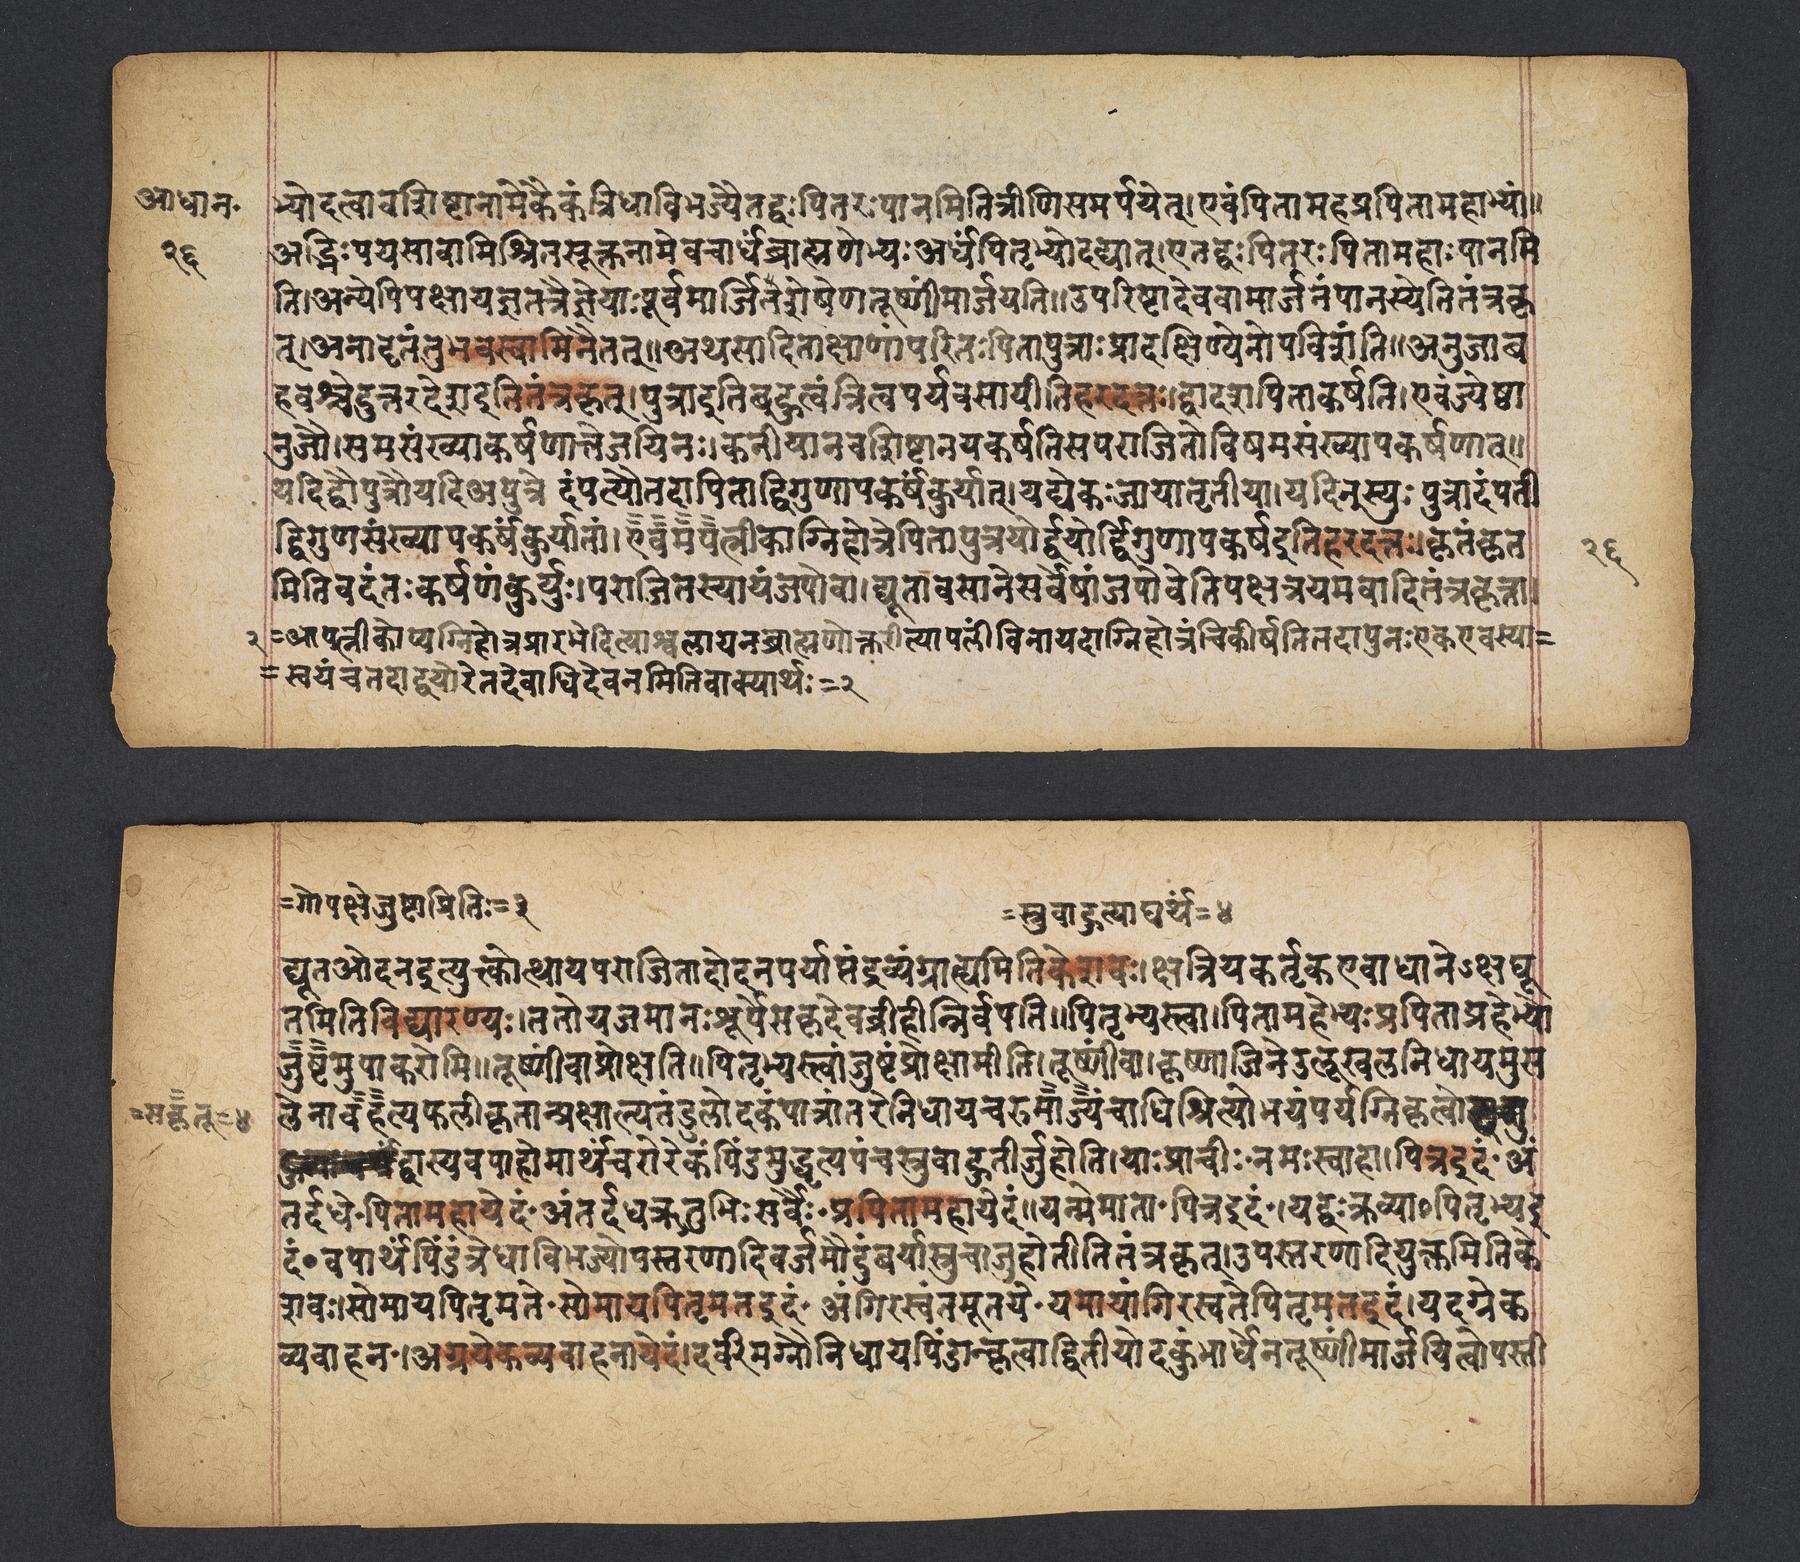 आधान॰
२६
भ्योदत्वावशिष्टानामेकैकंत्रिधाविभज्यैतद्वःपितरःपानमितित्रीणिसमर्पयेत्।एवंपितामहप्रपितामहाभ्यां॥
अद्भिःपयसावामिश्रितसूक्तनामेवचार्धंब्राह्मणेभ्यःअर्धंपितृभ्योदद्यात्।एतद्वःपितरःपितामहाःपानमि
ति।अन्येपिपक्षायज्ञतत्रैज्ञेयाःपूर्वमार्जितशेषेणतूष्णींमार्जयति॥उपरिष्टादेववामार्जनंपानस्येतितंत्रकृ
त्।अनादृतंतुभवस्वामिनैतत्॥अथसादिताक्षाणांपरितःपितापुत्राःप्रादक्षिण्येनोपविशंति॥अनुजाब
हवश्चेदुत्तरदेशइतितंत्रकृत्।पुत्राइतिबहुत्वंत्रित्वपर्यवसायीतिहरदत्तः।द्वादशपिताकर्षति।एवंज्येष्ठा
नुजौ।समसंख्याकर्षणात्तेजयिनः।कनीयानवशिष्टानयकर्षतिसपराजितोविषमसंख्यापकर्षणात्॥
यदिद्वौपुत्रौयदिअपुत्रे दंपत्यौतदापिताद्विगुणापकर्षंकुर्यात्।यद्येकःजायातृतीया।यदिनुस्युः पुत्रादंपती
द्विगुणसंख्यापकर्षंकुर्यातां।एवमपत्नीकाग्निहोत्रेपितापुत्रयोर्द्वयोर्द्विगुणापकर्षइतिहरदत्तः।कृतंकृत
२६
मितिवदंतःकर्षणंकुर्युः।पराजितस्यायंजपोवा।द्यूतावसानेसर्वेषांजपोवेतिपक्षत्रयमवादितंत्रकृत्ता।
२=अपत्नीकोप्यग्निहोत्रप्रारभेदित्याश्वलायनब्राह्मणोक्तरीत्यापत्नींविनायदाग्निहोत्रंचिकीर्षतितदापुनःएकएवस्या=
=स्वयंचतदाद्वयोरेतदेवाधिदेवनमितिवाक्यार्थः=२
=गोपक्षेजुष्टामितिः=३
=स्रुवाहुत्याघर्थं=४
द्यूतओदनइत्युक्त्कोत्थायपराजितादोदनपर्याप्तंद्रव्यंग्राह्यमितिकेशवः।क्षत्रियकर्तृकएवाधानेऽक्षद्यू
तमितिविद्यारण्यः।ततोयजमानःशूर्पेसकृदेवव्रीहीन्निर्वपति॥पितृभ्यस्त्वा।पितामहेभ्यःप्रपिताप्रहेभ्यो
जुष्टमुपाकरोमि॥तूष्णींवाप्रोक्षति॥पितृभ्यस्त्वांजुष्टंप्रोक्षामीति।तूष्णींवा।कृष्णाजिनेउलूखलनिधायमुस
=सकृत्=४
लेनावहत्यफलीकृतान्प्रक्षाल्यतंडुलोदकंपात्रांतरेनिधायचरुमाज्यंचाधिश्रित्योभयंपर्यग्निकृत्वो
द्वास्यवपाहोमार्थंचरोरेकंपिंडमुद्धृत्यपंचस्रुवाहुतीर्जुहोति।याःप्राचीः॰नमःस्वाहा।पित्रइदं॰अं
तर्दधे॰पितामहायेदं॰अंतर्दधऋतुभिःसर्वैः॰प्रपितामहायेदं॥यन्मेमाता॰पित्रइदं॰।यद्वःक्रव्या०पितृभ्यइ
दं०वपार्थंपिंडंत्रेधाविभज्योपस्तरणादिवर्जमौदुंबर्यास्रुचाजुहोतीतितंत्रकृत्।उपस्तरणादियुक्तमितिके
शवः।सोमायपितृमते॰सोमायपितृमतइदं॰ अंगिरस्वंतमूतये॰यमायांगिरस्वतेपितृमतइदं।यदग्नेक
व्यवाहन॰।अग्नयेकव्यवाहनायेदं।दर्वीमग्नौनिधायपिंडान्कृत्वाद्वितीयोदकुंभार्धेनतूष्णींमार्जयित्वोपस्ती